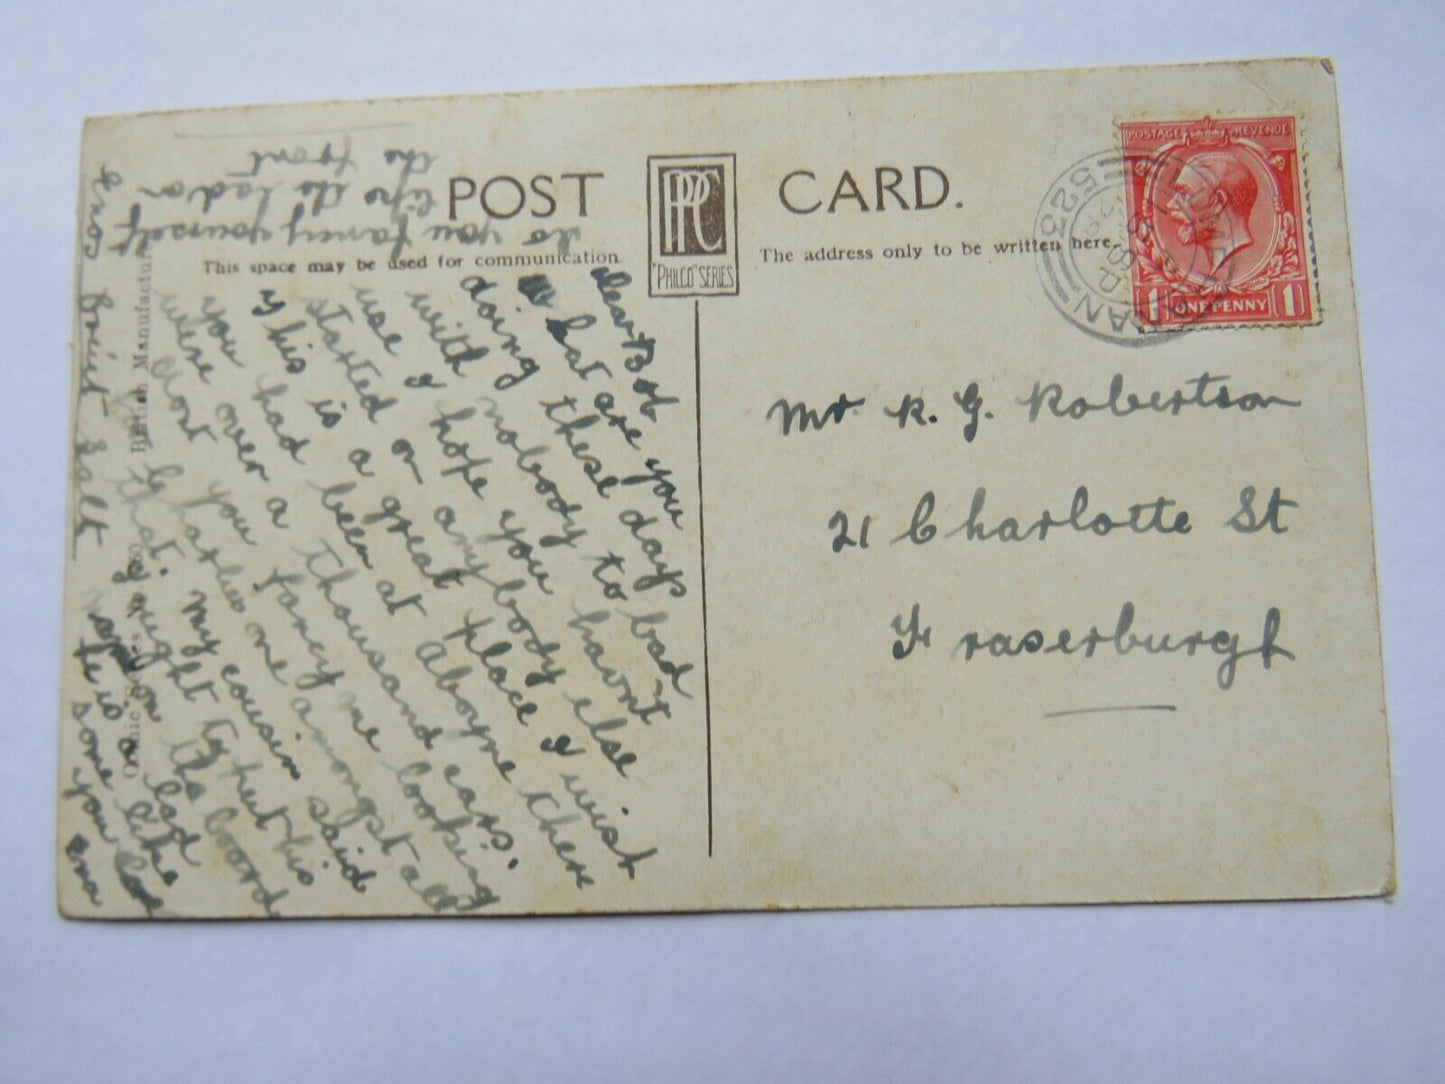 POST CARD.
PPC
"PHILCO" SERIES
This space may be used for communication
The address only to be written here.
POSTAGE REVENUE
1 ONE PENNY 1
523
British Manufacture
Series No
Dear Bob
What are you
doing these days
with nobody to bad
use I hope you havnt
started on anybody else
This is a great place I wish
you had been at Aboyne there
were over a thousand cars.
dont you fancy me looking
Charles me amongst all
that. my cousin said
ought to put this
on the board
he is a lad
some like
you
Enos Fruit Salt
do you fancy yourself
like the lad on
the front
Mr. R. G. Robertson
21 Charlotte St
Fraserburgh